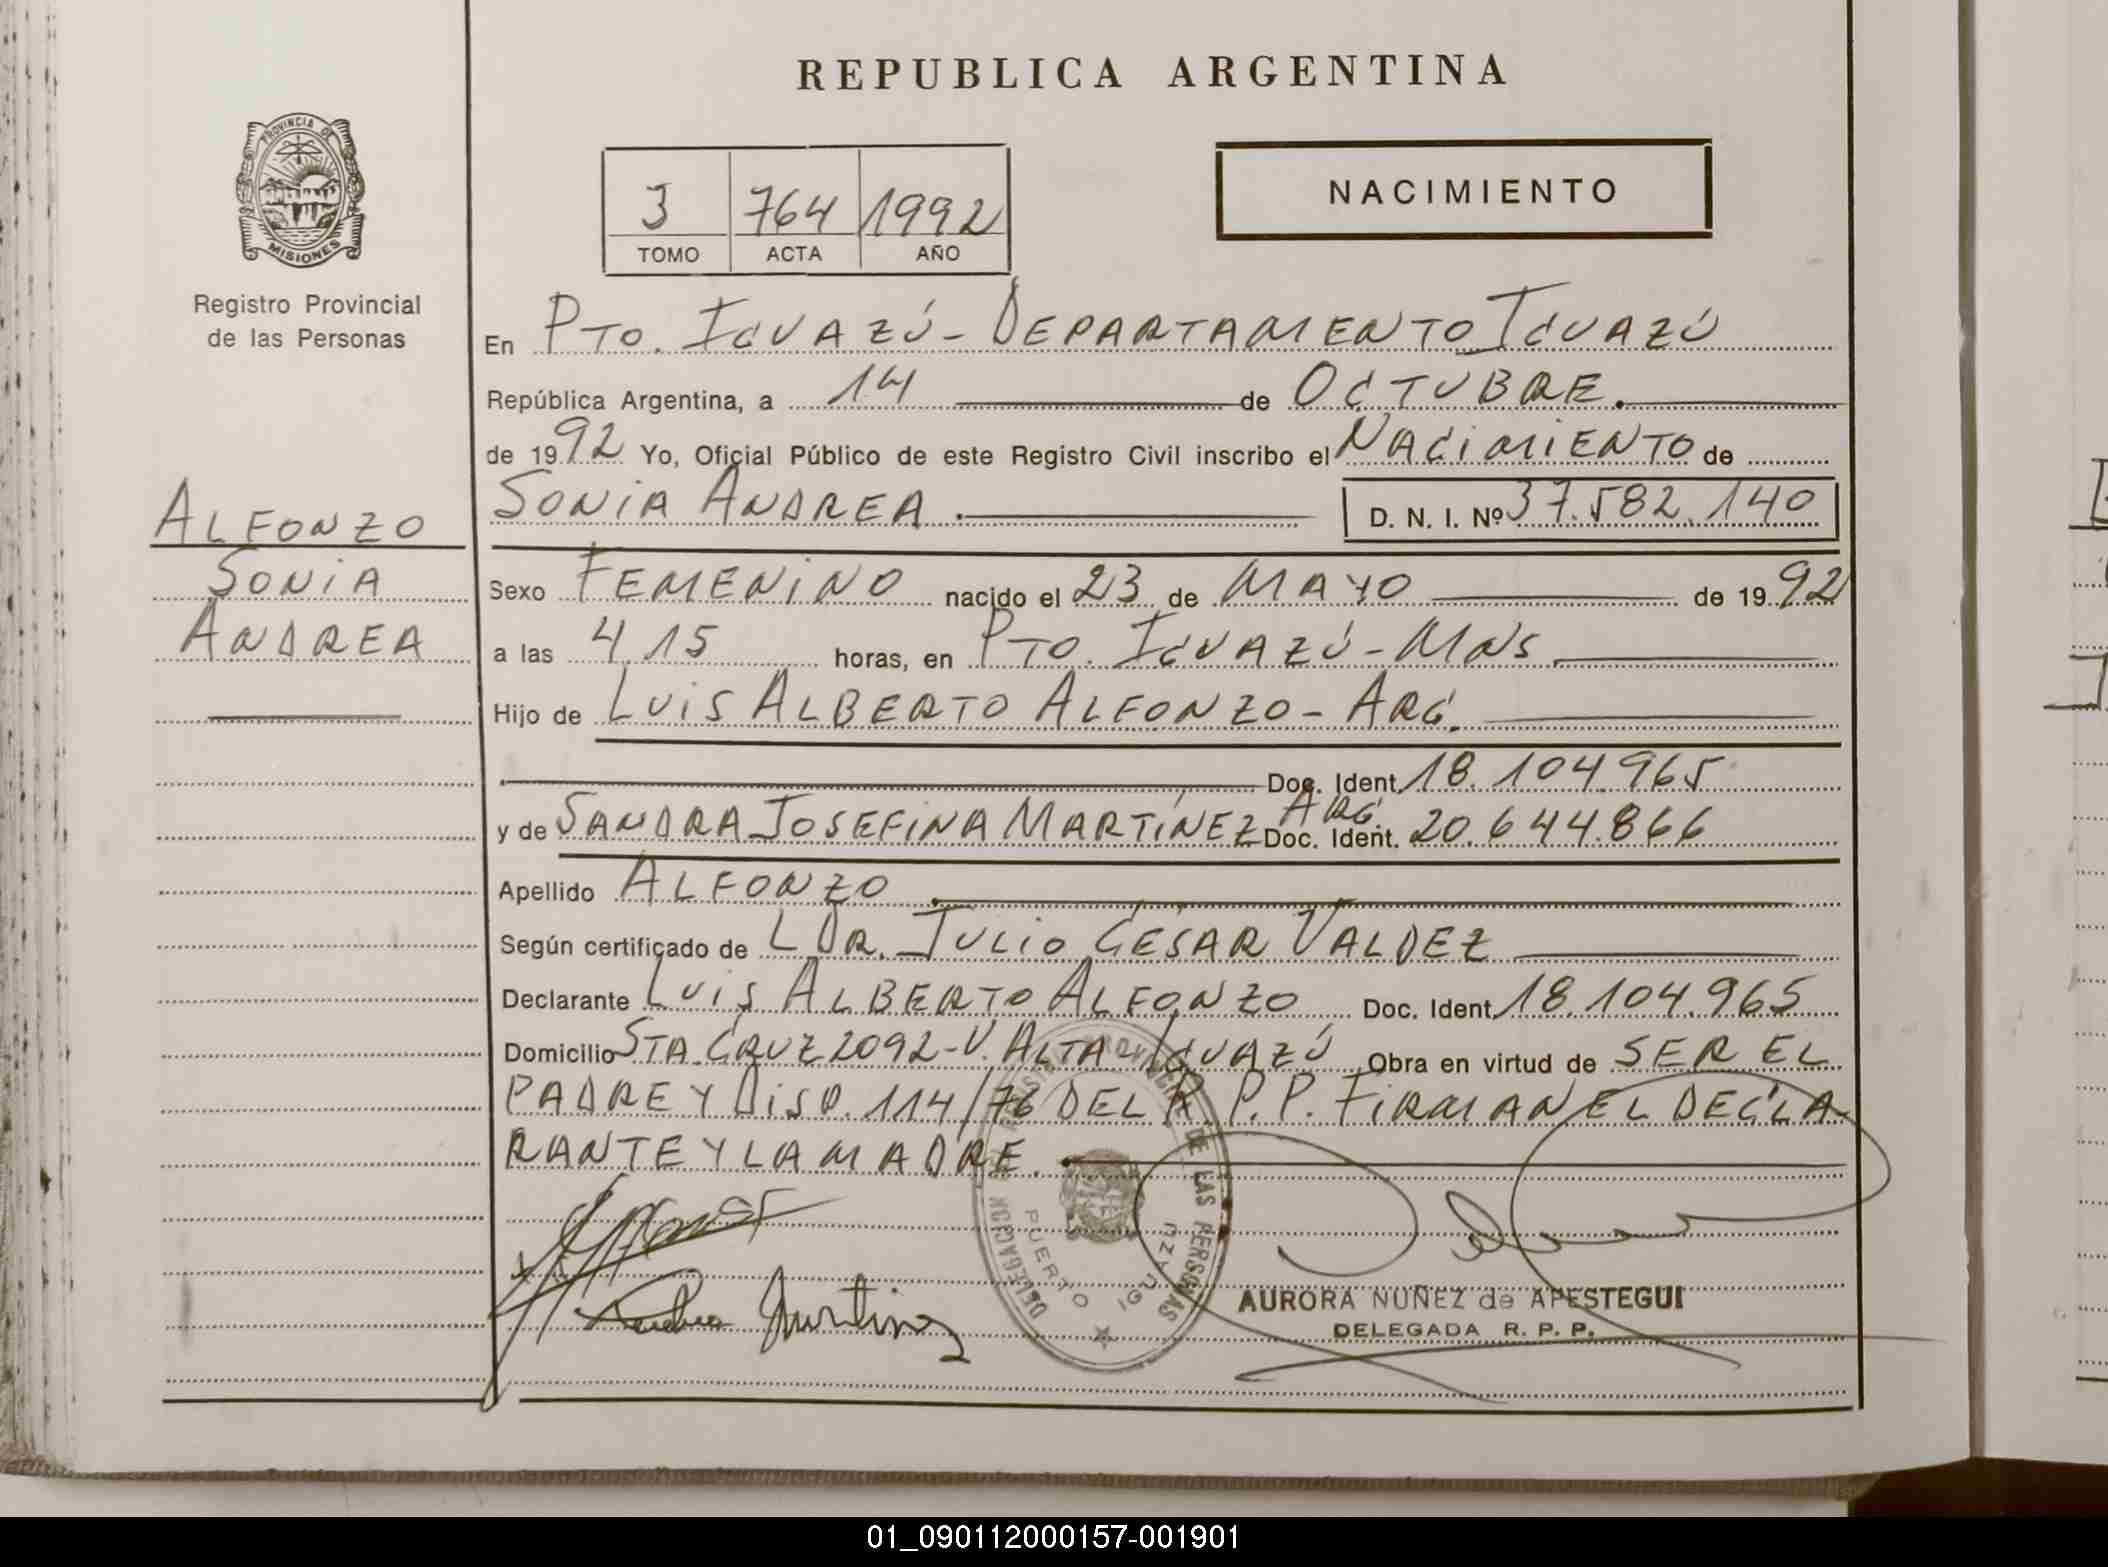 REPUBLICA ARGENTINA
PROVINCIA DE
MISIONES
Registro Provincial
de las Personas
3 764 1992
TOMO ACTA AÑO
NACIMIENTO
En PTO. IGUAZÚ - DEPARTAMENTO IGUAZÚ
República Argentina, a 14 de OCTUBRE.
de 1992 Yo, Oficial Público de este Registro Civil inscribo el NACIMIENTO de
SONIA ANDREA. D. N. I. Nº 37.582.140
ALFONZO
SONIA
ANDREA
Sexo FEMENINO nacido el 23 de MAYO de 1992
a las 4,15 horas, en PTO. IGUAZÚ - MNS
Hijo de LUIS ALBERTO ALFONZO - ARG.
Doc. Ident. 18.104.965
y de SANDRA JOSEFINA MARTÍNEZ ARG. Doc. Ident. 20.644.866
Apellido ALFONZO.
Según certificado de L DR. JULIO CÉSAR VALDEZ
Declarante LUIS ALBERTO ALFONZO Doc. Ident. 18.104.965
Domicilio STA. CRUZ 2092 - V. ALTA - IGUAZÚ Obra en virtud de SER EL
PADRE Y DISP. 114/76 DEL R.P.P. FIRMAN EL DECLA
RANTE Y LA MADRE.
Sandra Martinez
REGISTRO PROVINCIAL DE LAS PERSONAS
DELEGACION
PUERTO IGUAZU
AURORA NUÑEZ de APESTEGUI
DELEGADA R. P. P.
01_090112000157-001901